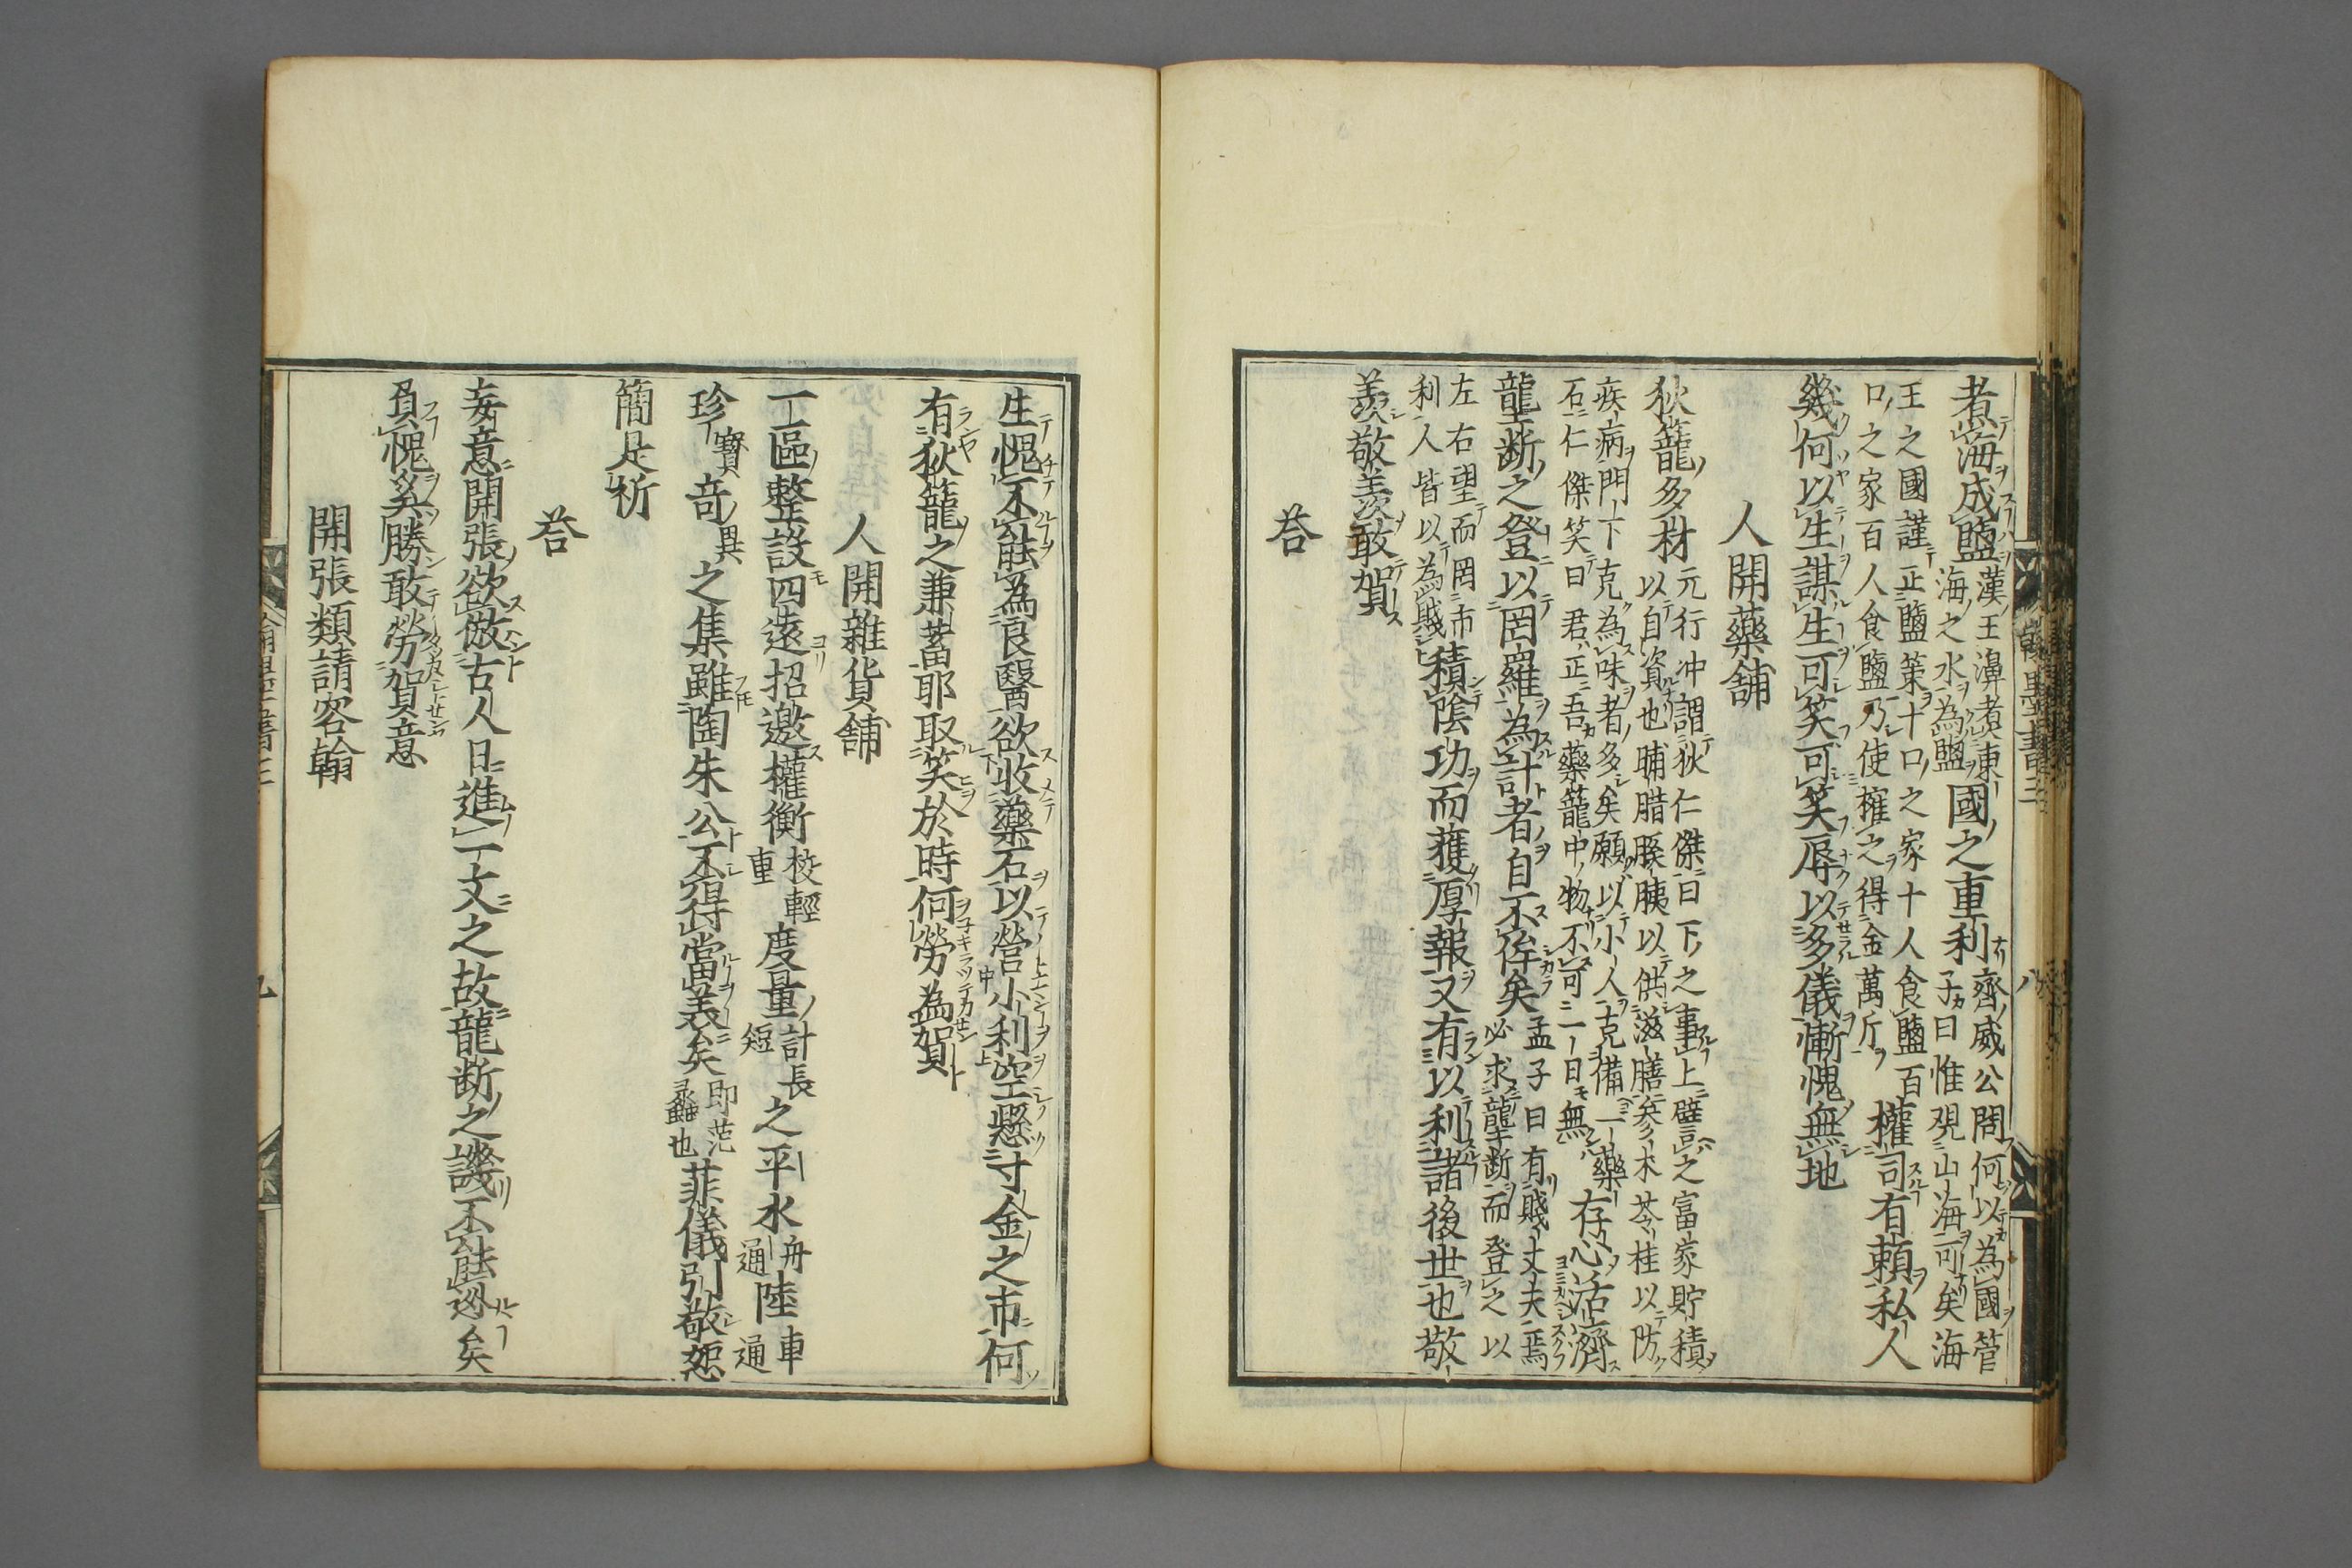 煮海成鹽漢王濞煮東海之水為鹽國之重利齊威公問何以為國管子曰惟覌山海可矣海
王之國謹正鹽筴十口之家十人食鹽百口之家百人食鹽乃使㩁之得金萬斤權司有頼私人
幾何以生謀生可笑可笑辱以多儀慚愧無地
人開藥舖
狄籠多材元行沖謂狄仁傑曰下之事上譬之富家貯積以自資也脯腊膎胰以供滋膳参朮苓桂以防
疾病門下克為味者多矣願以小人克備一藥石仁傑笑曰君正吾藥籠中物不可一日無存心活濟
龍断之登以罔羅為計者自不侔矣孟子曰有賤丈夫焉必求龍断而登之以
左右望而罔市利人皆以為賤積陰功而獲厚報又有以利諸後世也敬
羨敬羨敢賀
荅
生愧不能為良醫欲收藥石以營小利空懸寸金之市何
有狄籠之兼蓄耶取笑於時何勞為賀
人開雜貨舖
一區整設四遠招邀權衡校輕重度量計長短之平水舟通陸車通
珍寳竒異之集雖陶朱公不得當羙矣即范蠡也菲儀引敬恕
簡是祈
荅
妄意開張欲倣古人日進一文之故龍断之譏不能迯矣
負愧奚勝敢勞賀意
開張類請客翰
翰墨書三
八
九